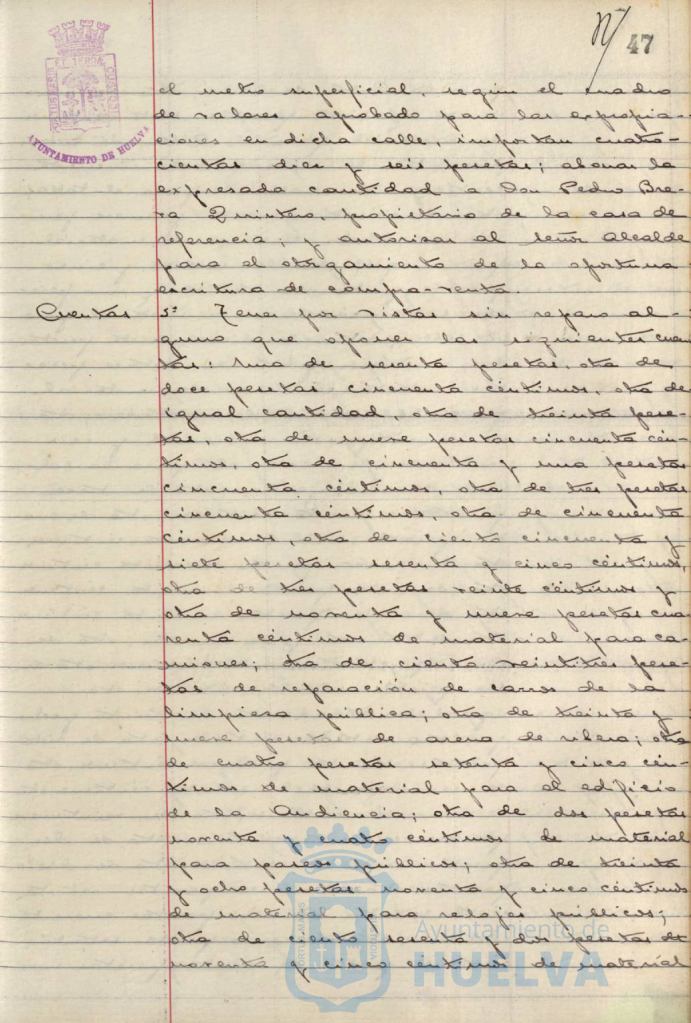 47
AYUNTAMIENTO DE HUELVA
el metro superficial, según el cuadro
de valores aprobado para las expropia-
ciones en dicha calle, importan cuatro-
cientas diez y seis pesetas; abonar la
expresada cantidad a Don Pedro Bre-
va Quintero, propietario de la casa de
referencia; y autorizar al señor Alcalde
para el otorgamiento de la oportuna
escritura de compra-venta.
Cuentas 5º Tener por vistas sin reparo al-
guno que oponer las siguientes cuen-
tas: una de sesenta pesetas, otra de
doce pesetas cincuenta céntimos, otra de
igual cantidad, otra de treinta pese-
tas, otra de nueve pesetas cincuenta cén-
timos, otra de cincuenta y una pesetas
cincuenta céntimos, otra de tres pesetas
cincuenta céntimos, otra de cincuenta
céntimos, otra de ciento cincuenta y
siete pesetas sesenta y cinco céntimos,
otra de tres pesetas veinte céntimos y
otra de noventa y nueve pesetas cua
renta céntimos de material para ca-
miones; otra de ciento veintitres pese-
tas de reparación de carros de la
limpieza pública; otra de treinta y
nueve pesetas de arena de ribera; otra
de cuatro pesetas setenta y cinco cén-
timos de material para el edificio
de la Audiencia; otra de dos pesetas
noventa y cuatro céntimos de material
para paseos públicos; otra de treinta
y ocho pesetas noventa y cinco céntimos
de material para relojes públicos;
otra de ciento sesenta y dos pesetas
noventa y cinco céntimos de material
Ayuntamiento de
HUELVA